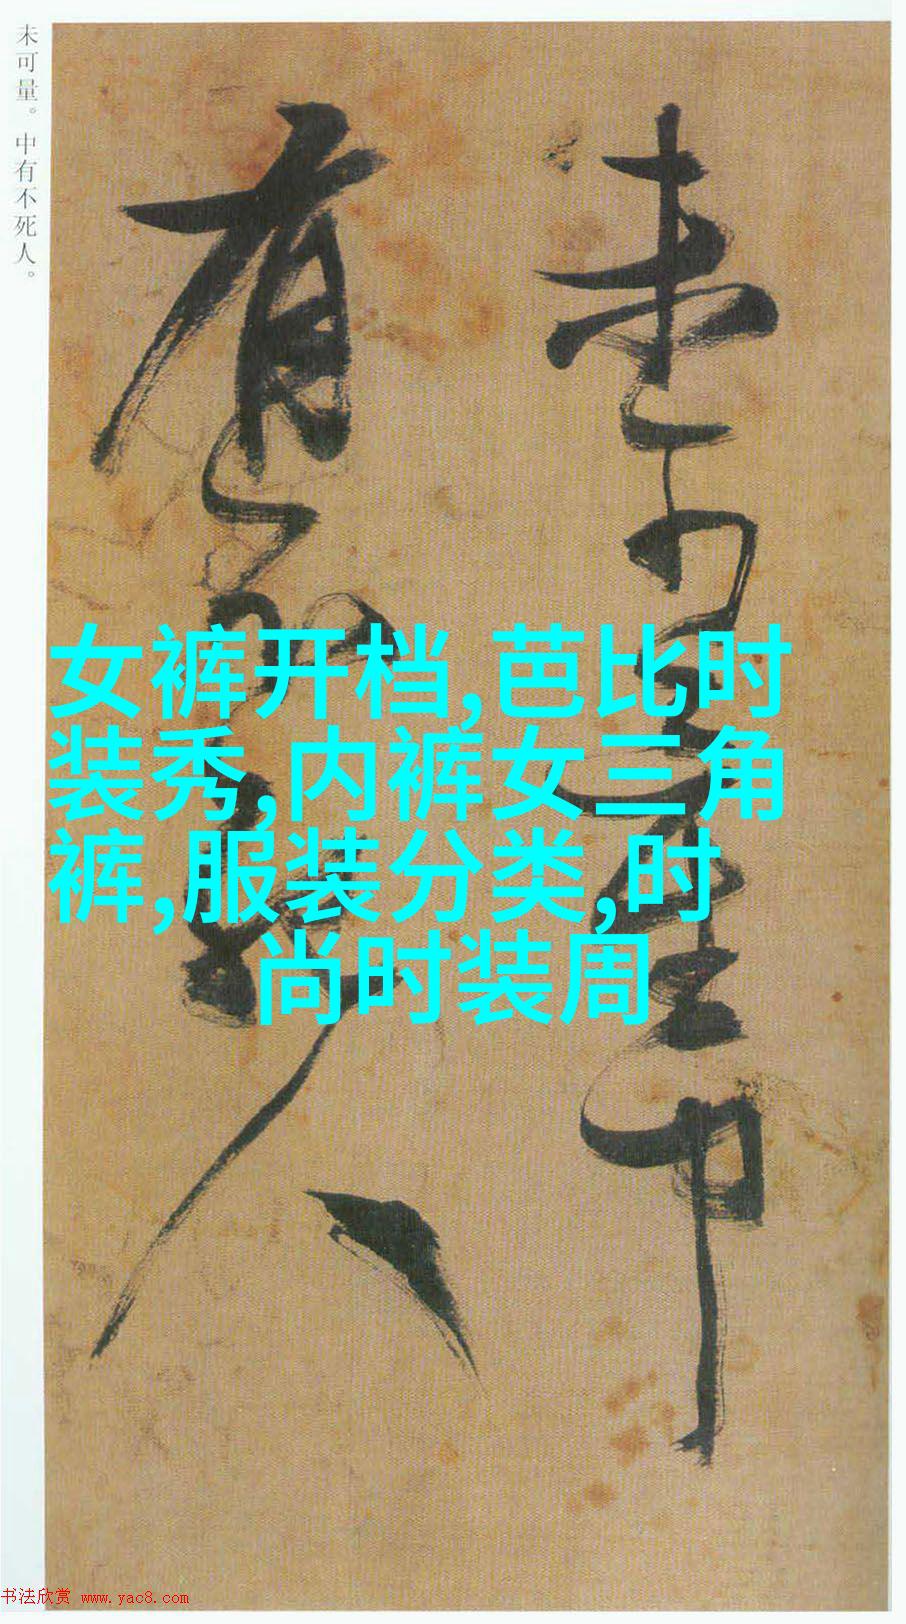 未可量。中有不死人。
未可量中
有不死人
女裤开档,芭比时
装秀,内裤女三角
裤,服装分类,时
尚时装周
书法欣赏 www.yac8.com